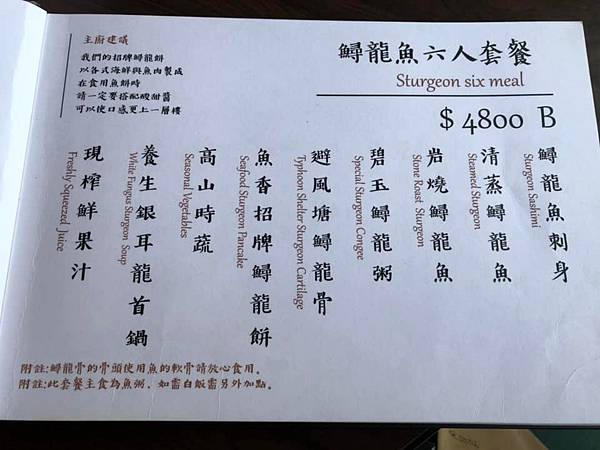 鱘龍魚六人套餐
Sturgeon six meal
$ 4800 B
主廚建議
我們的招牌鱘龍餅
以各式海鮮與魚肉製成
在食用魚餅時
請一定要搭配酸甜醬
可以使口感更上一層樓
鱘龍魚刺身
Sturgeon Sashimi
清蒸鱘龍魚
Steamed Sturgeon
岩燒鱘龍魚
Stone Roast Sturgeon
碧玉鱘龍粥
Special Sturgeon Congee
避風塘鱘龍骨
Typhoon Shelter Sturgeon Cartilage
魚香招牌鱘龍餅
Seafood Sturgeon Pancake
高山時蔬
Seasonal Vegetables
養生銀耳龍首鍋
White Fungus Sturgeon Soup
現榨鮮果汁
Freshly Squeezed Juice
附註:鱘龍骨的骨頭使用魚的軟骨請放心食用。
附註:此套餐主食為魚粥，如需白飯需另外加點。